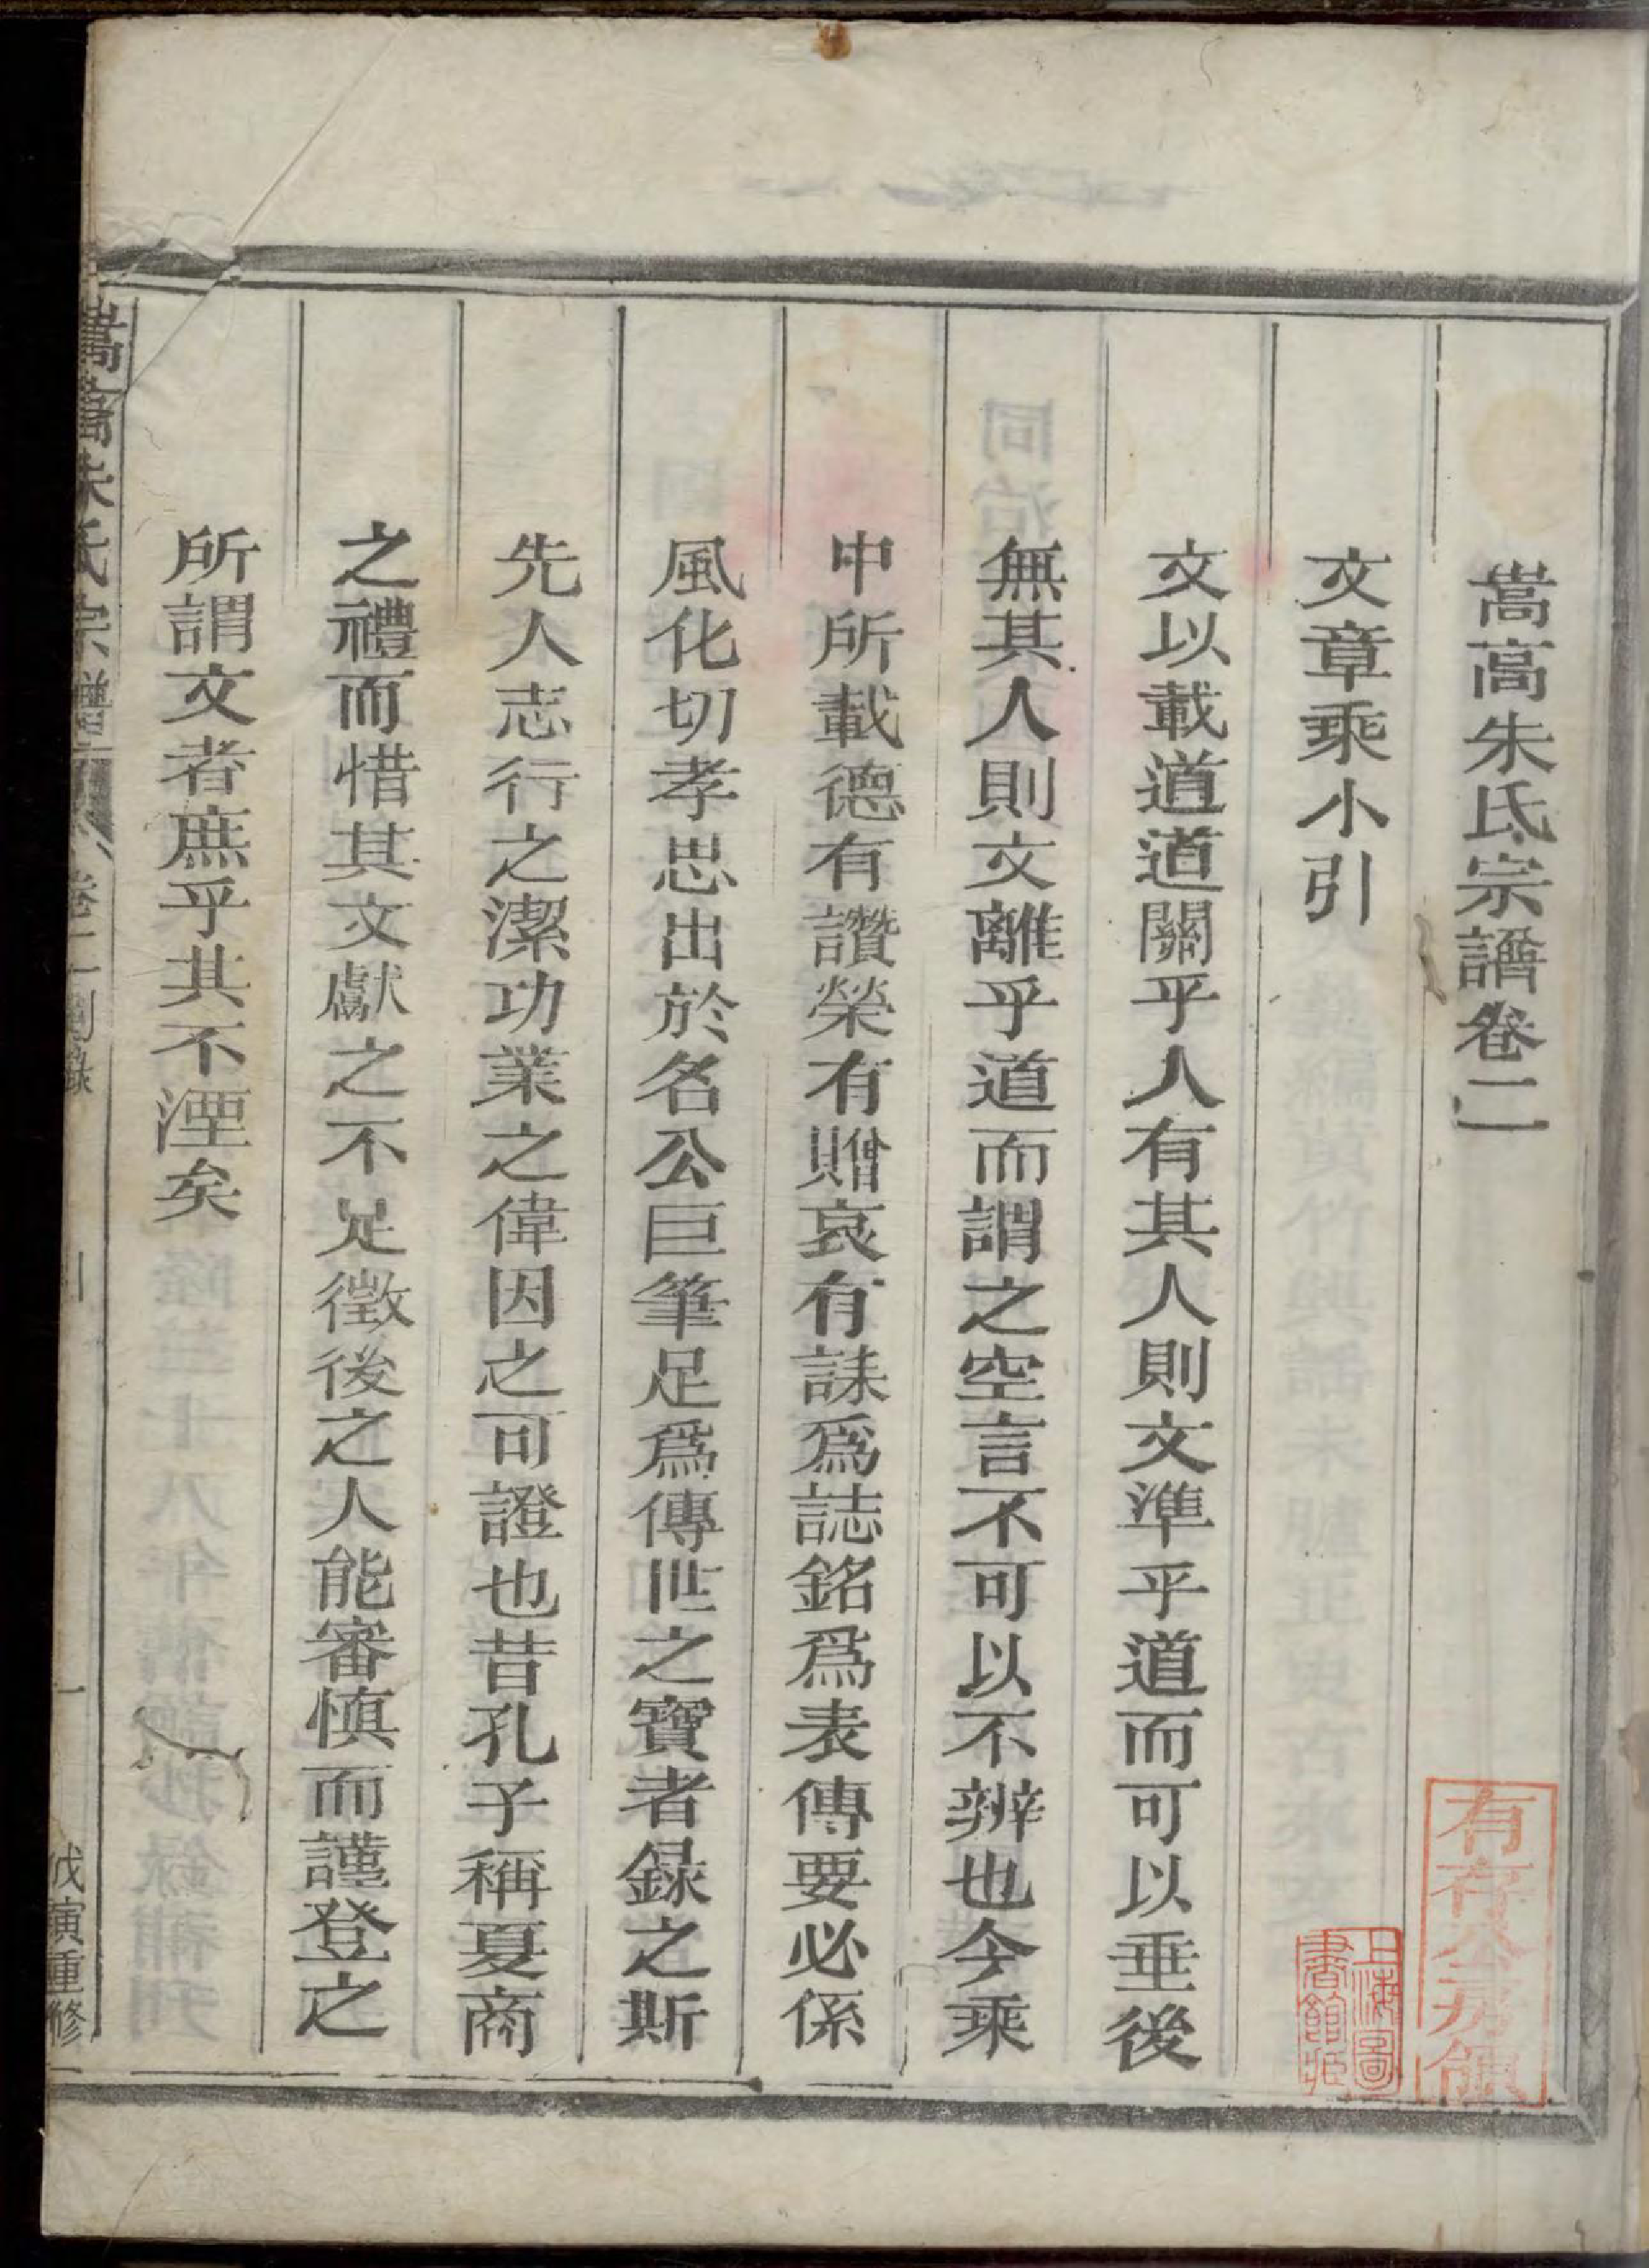 嵩高朱氏宗譜卷二
文章乘小引
文以載道道關乎人有其人則文準乎道而可以垂後
無其人則文離乎道而謂之空言不可以不辨也今乘
中所載德有讚榮有贈哀有誄爲誌銘爲表傳要必係
風化切孝思出於名公巨筆足爲傳世之寶者録之斯
先人志行之潔功業之偉因之可證也昔孔子稱夏商
之禮而惜其文獻之不足徵後之人能審慎而謹登之
所謂文者庶乎其不湮矣
嵩高朱氏宗譜
卷二
一
戊寅重修
有存公房領
上海圖書館藏